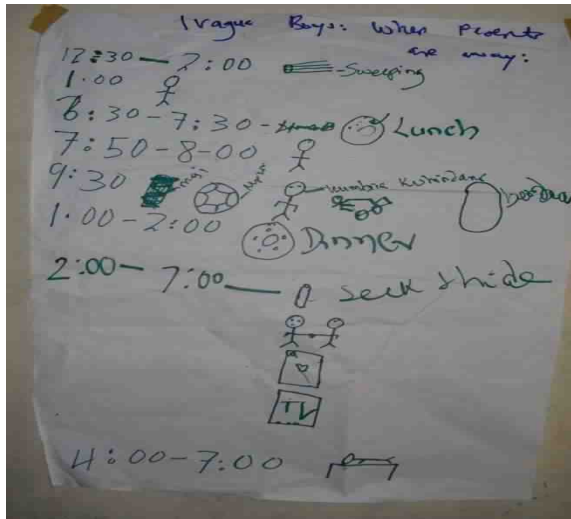 Iragua Boys: When Parents
are away:
12:30 — 2:00 Sweeping
1.00
6:30 - 7:30 - Lunch
7:50 - 8-00
9:30 maji kukimbizana
1.00 - 2:00
Dinner
2:00 — 7:00 — Seek & hide
TV
4:00 - 7:00